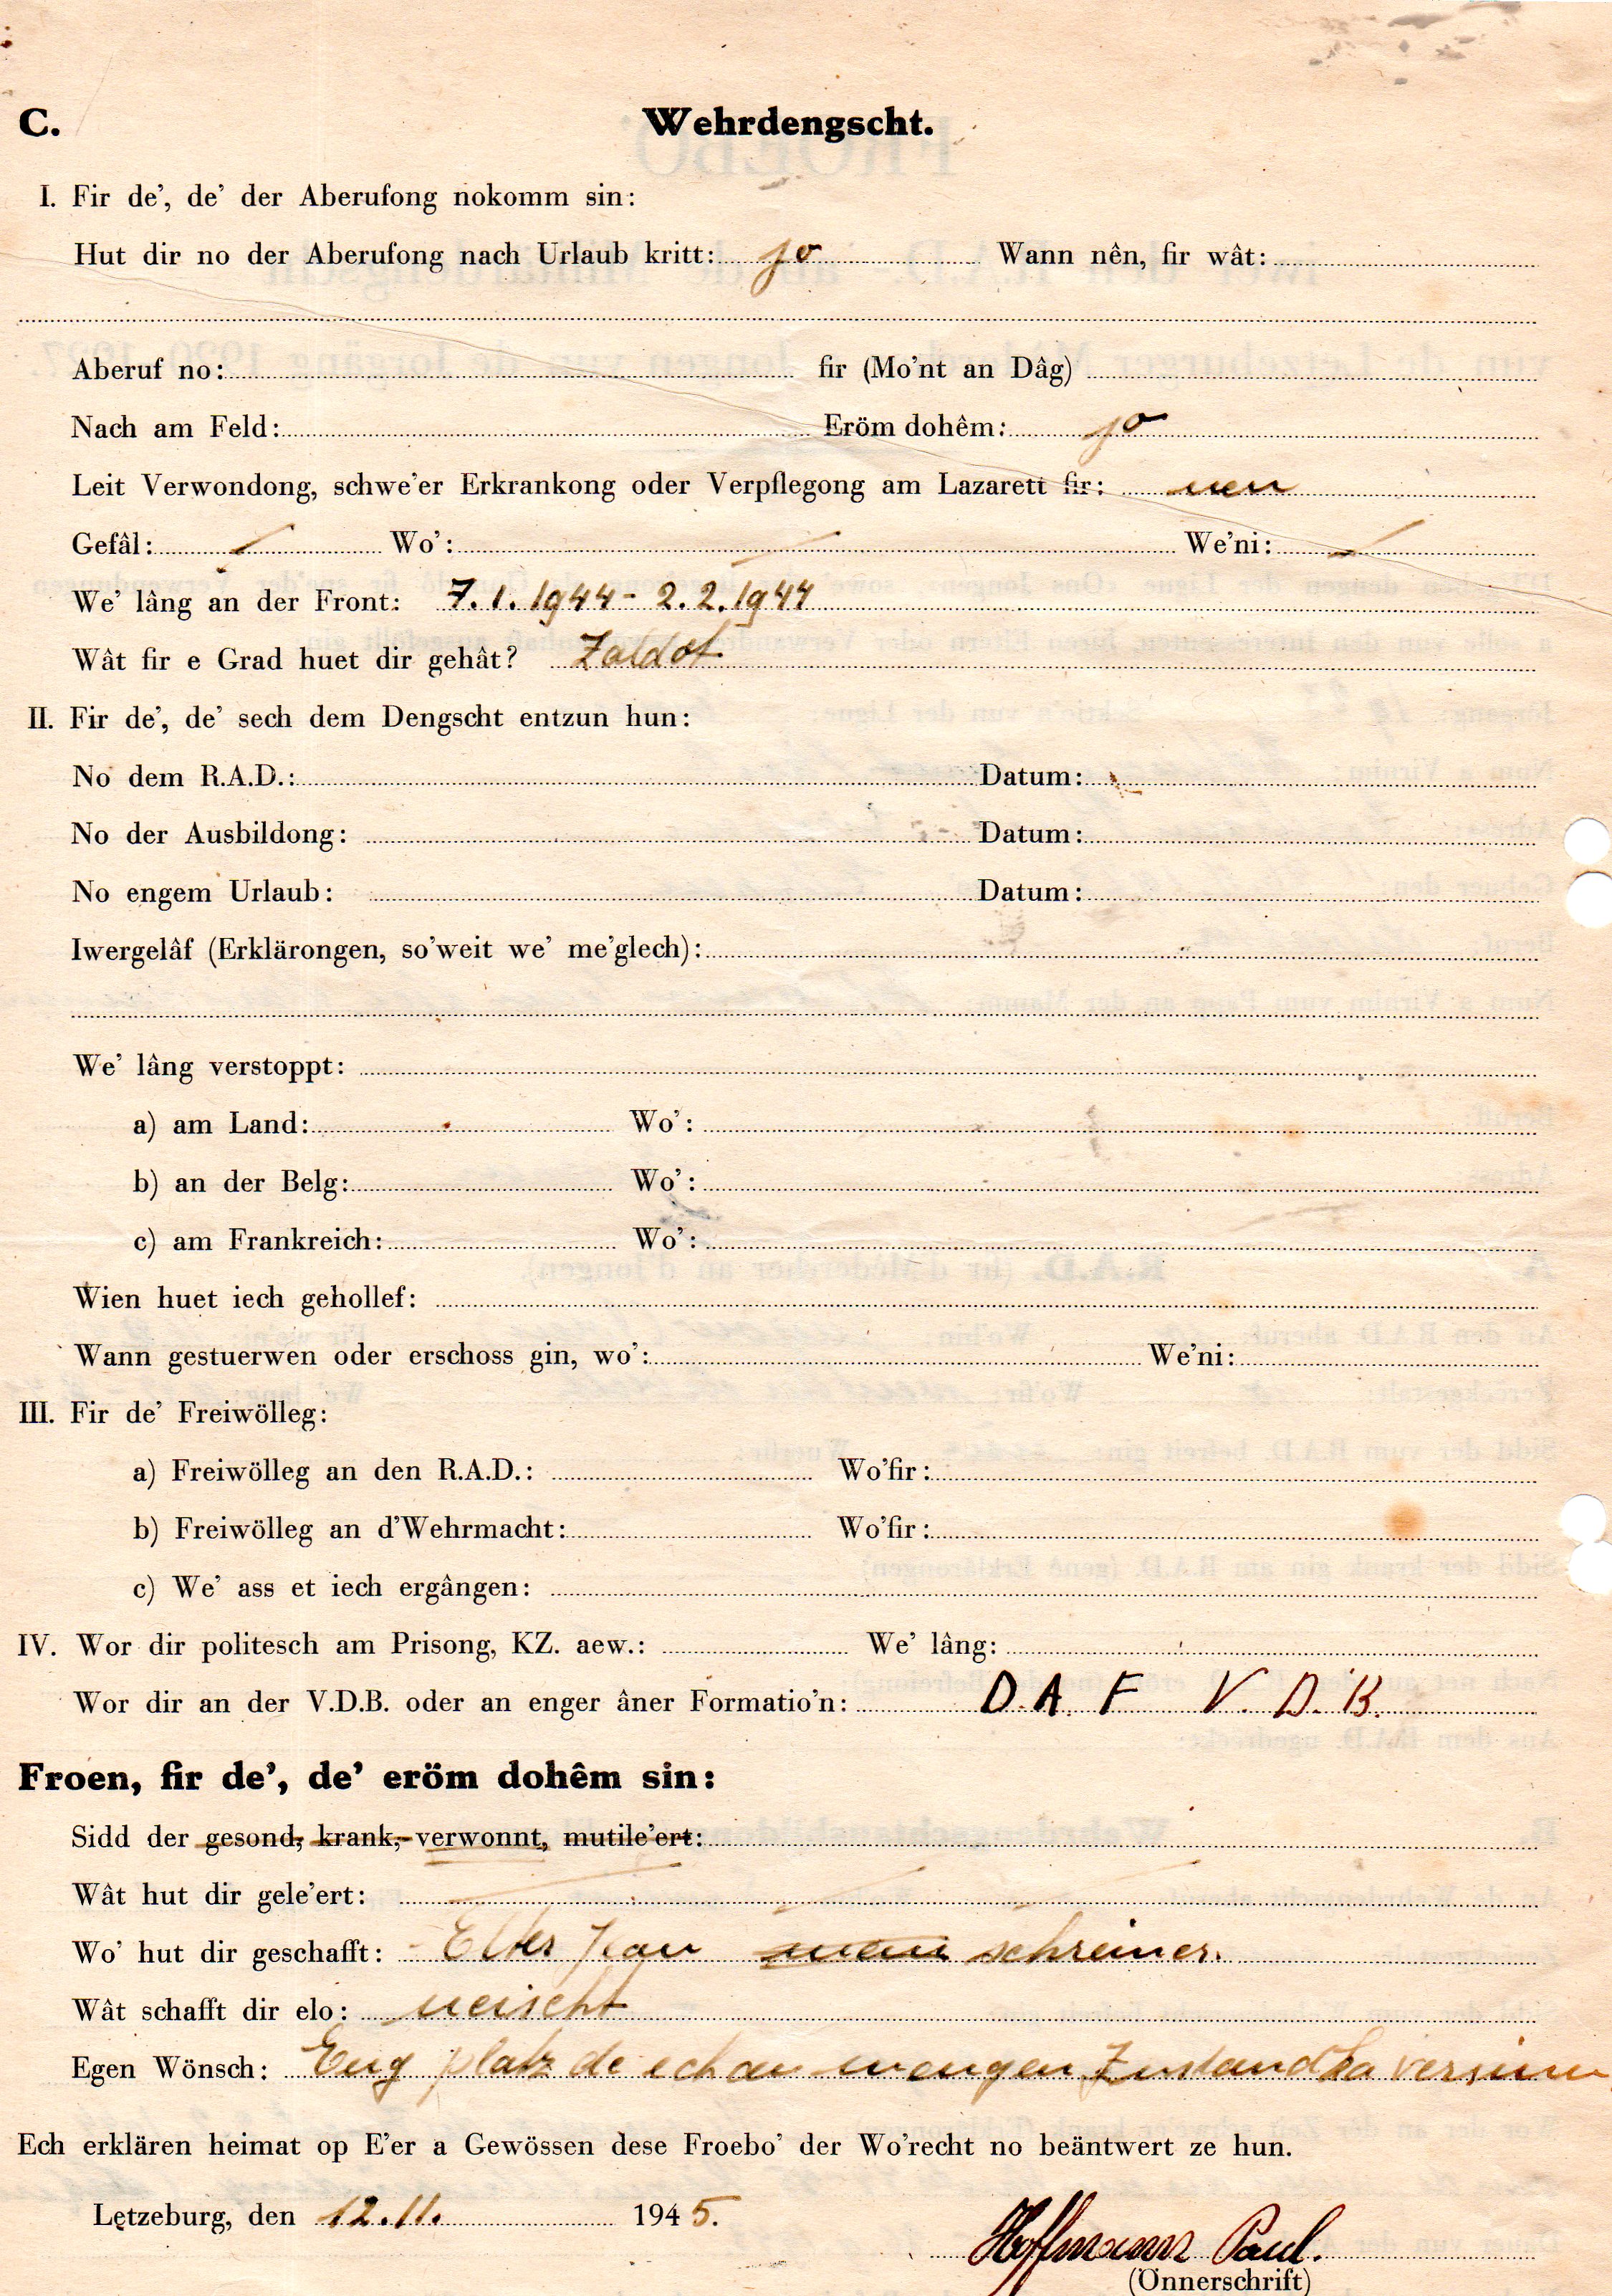 C. Wehrdengscht.
I. Fir de', de' der Aberufong nokomm sin:
Hut dir no der Aberufong nach Urlaub kritt: jo Wann nên, fir wât:
Aberuf no: fir (Mo'nt an Dâg)
Nach am Feld: Eröm dohêm: jo
Leit Verwondong, schwe'er Erkrankong oder Verpflegong am Lazarett fir: nen
Gefâl: Wo': We'ni:
We' lâng an der Front: 7.1.1944 - 2.2.1944
Wât fir e Grad huet dir gehât? Zaldot
II. Fir de', de' sech dem Dengscht entzun hun:
No dem R.A.D.: Datum:
No der Ausbildong: Datum:
No engem Urlaub: Datum:
Iwergelâf (Erklärongen, so'weit we' me'glech):
We' lâng verstoppt:
a) am Land: Wo':
b) an der Belg: Wo':
c) am Frankreich: Wo':
Wien huet iech gehollef:
Wann gestuerwen oder erschoss gin, wo': We'ni:
III. Fir de' Freiwölleg:
a) Freiwölleg an den R.A.D.: Wo'fir:
b) Freiwölleg an d'Wehrmacht: Wo'fir:
c) We' ass et iech ergângen:
IV. Wor dir politesch am Prisong, KZ. aew.: We' lâng:
Wor dir an der V.D.B. oder an enger âner Formatio'n: D.A.F V.D.B.
Froen, fir de', de' eröm dohêm sin:
Sidd der gesond, krank, verwonnt, mutile'ert:
Wât hut dir gele'ert:
Wo' hut dir geschafft: Elter Jean schreiner.
Wât schafft dir elo: neischt
Egen Wönsch: Eng platz de ech an mengen Zustand ka versinn
Ech erklären heimat op E'er a Gewössen dese Froebo' der Wo'recht no beäntwert ze hun.
Lętzeburg, den 12.11. 1945.
Hoffmann Paul.
(Önnerschrift)